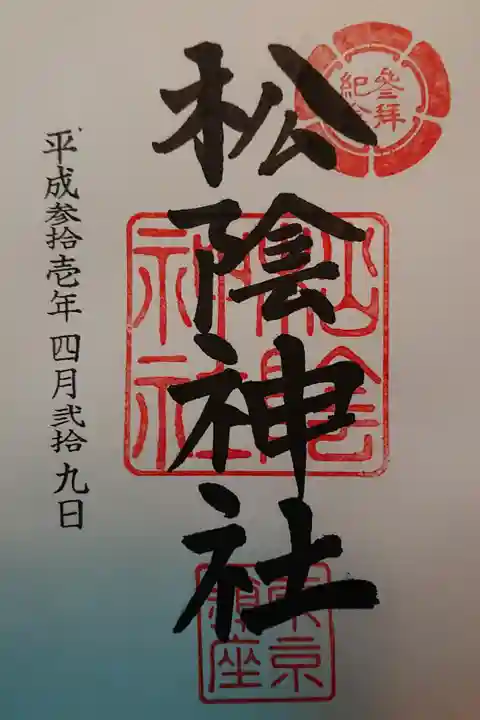 参拜
紀念
松陰神社
松陰
神社
東京
鎮座
平成参拾壱年四月弐拾九日